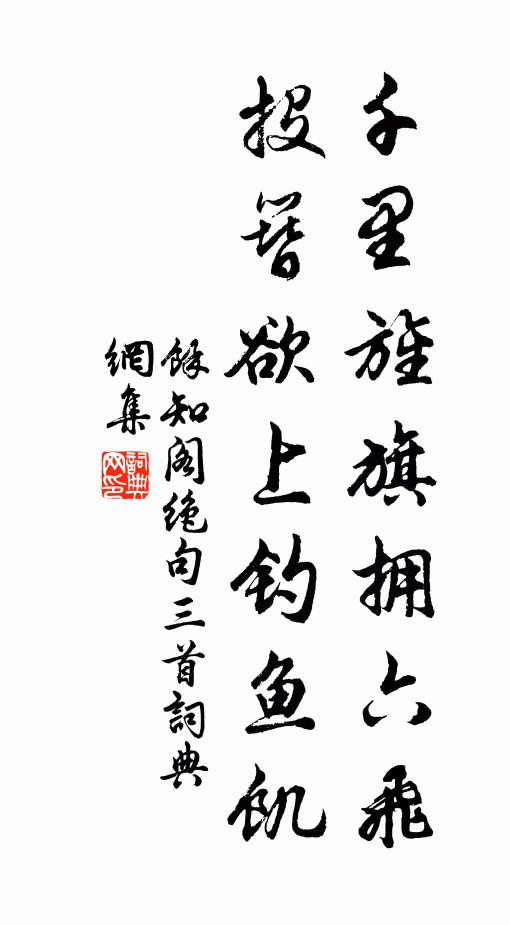 千里旌旗拥六飛
投簪欲上钓鱼飢
餘知阁绝句三首詞典
網集
詞典網印